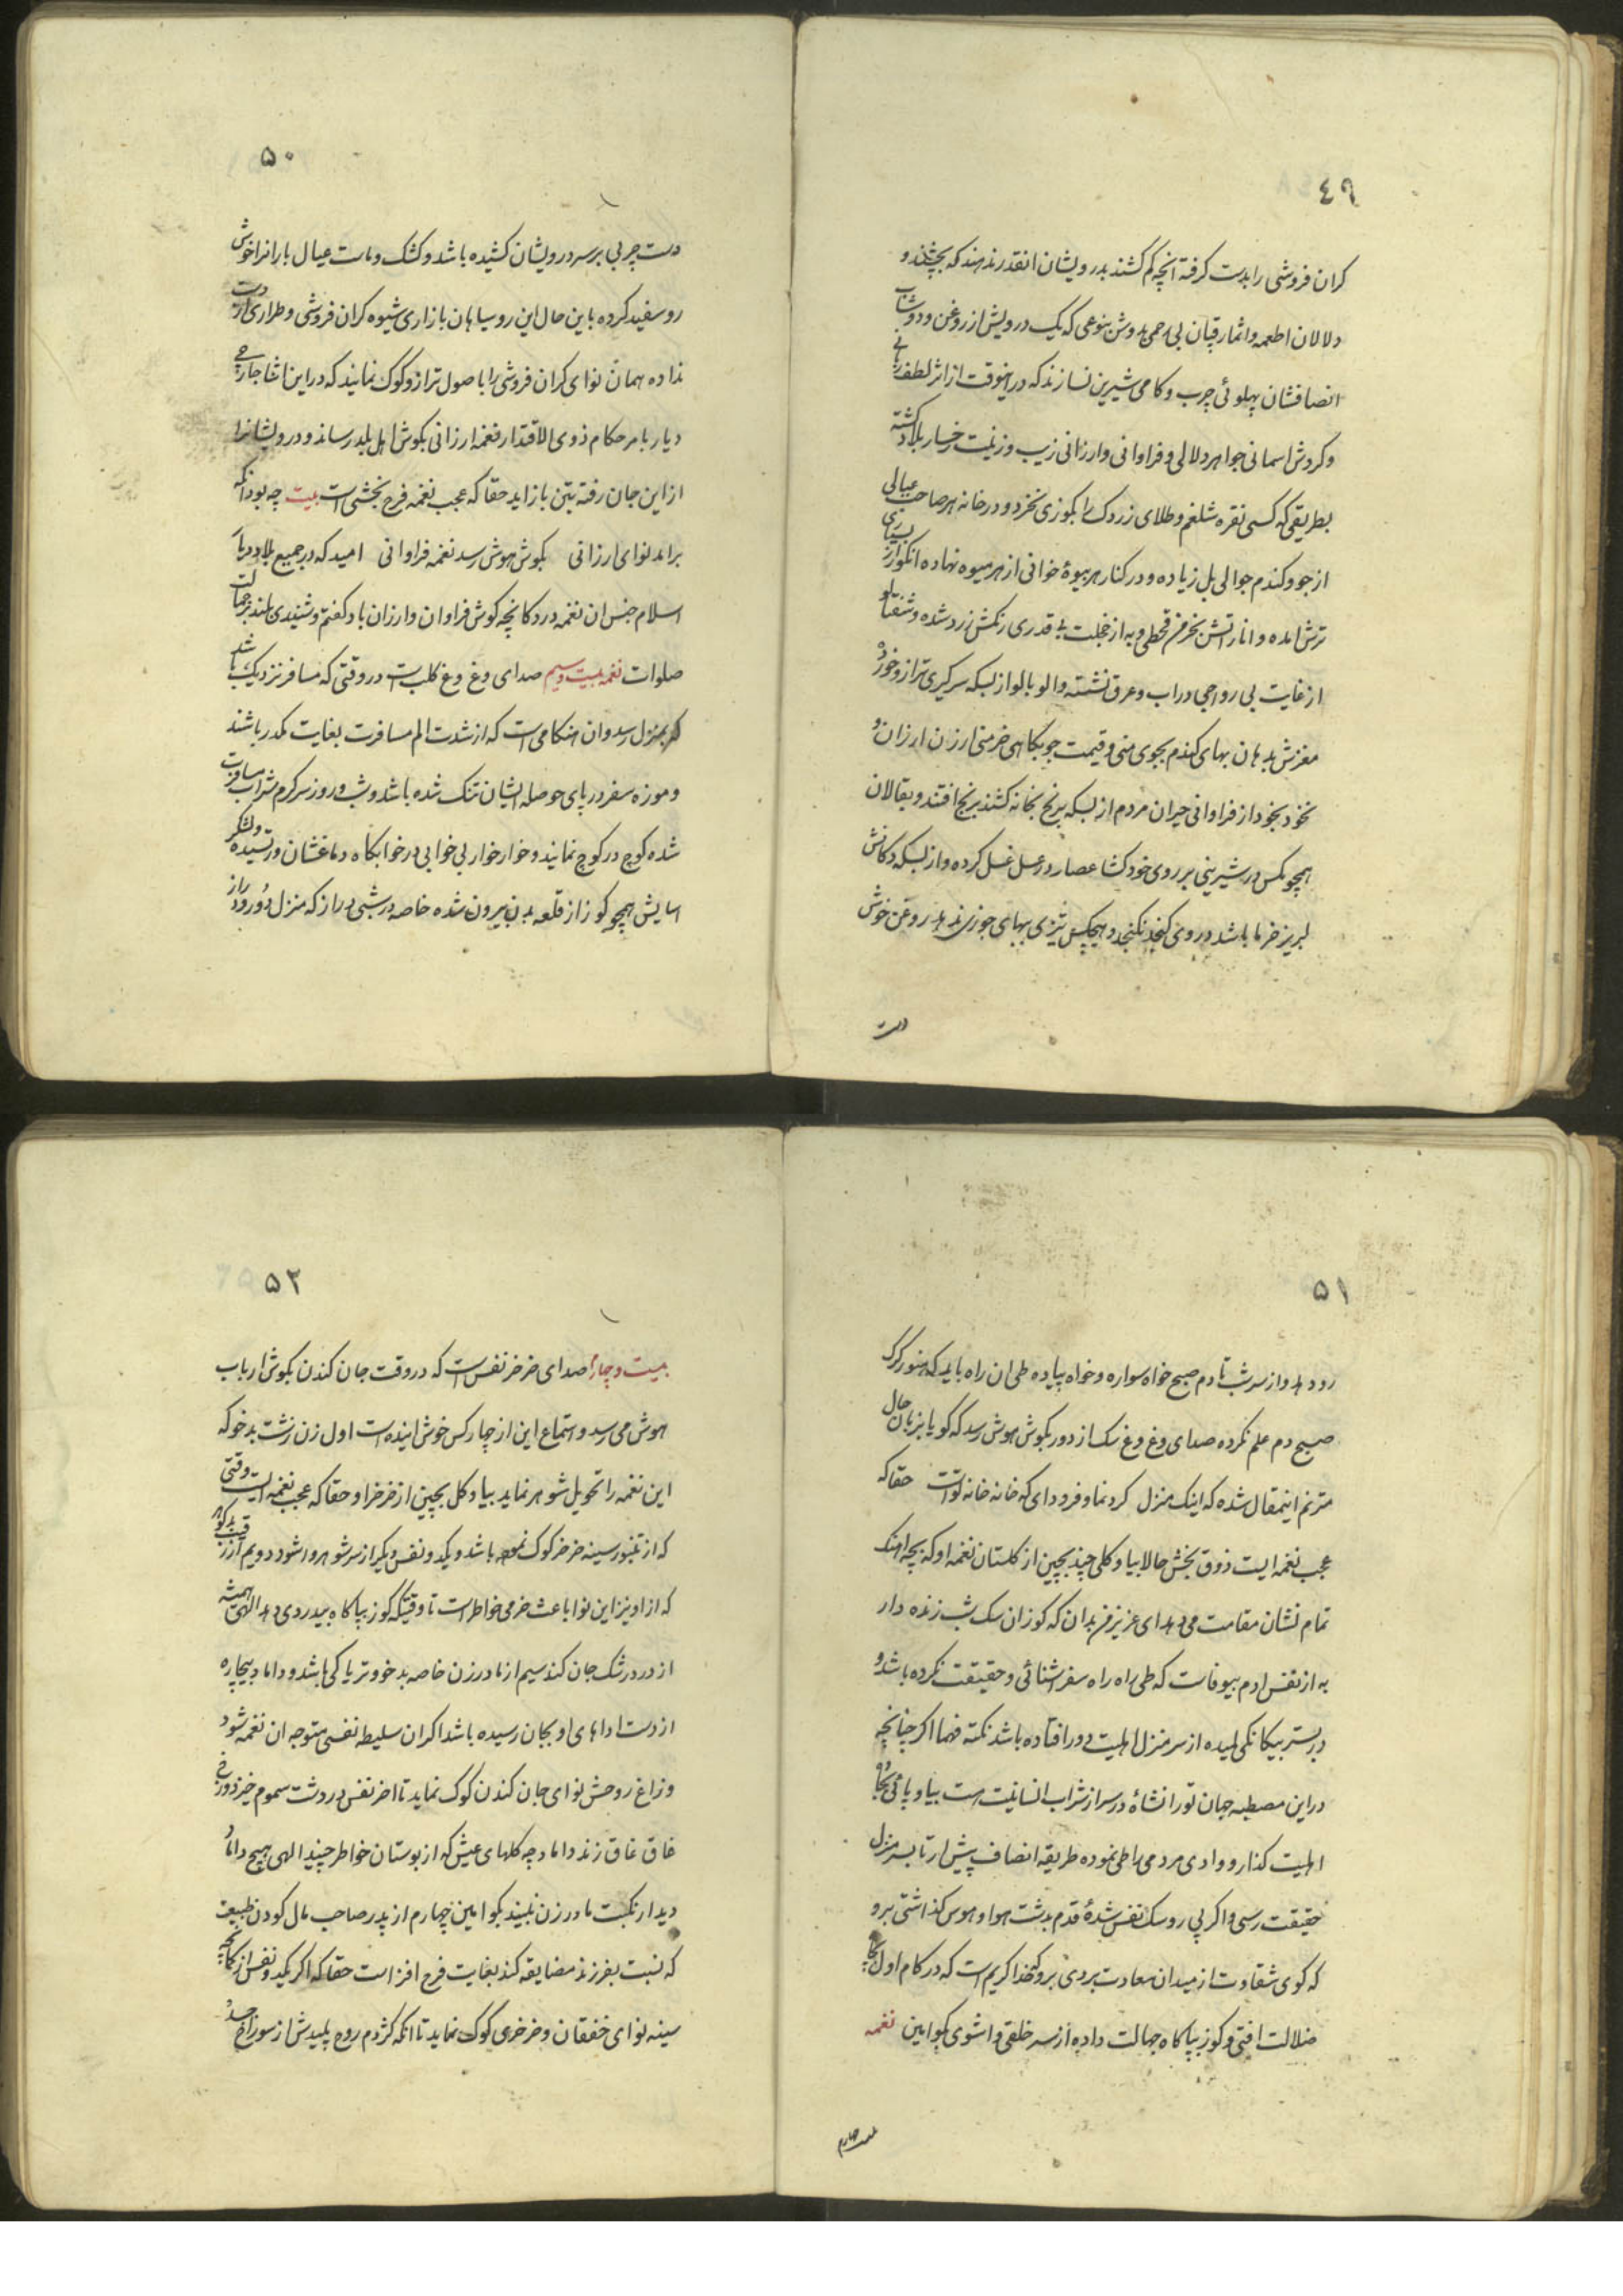 ٤٩
کران فروشی را بدست کرفته آنچه کم کشند بدرویشان انقدر ندهند که بچشند و
دلالان اطعمه و اثمار قپان بی رحمی بدوش بنوعی که یک درویش از روغن و دوشاب
انصافشان پهلوئی چرب و کامی شیرین نسازند که در اینوقت از اثر لطف ربانی
و کردش اسمانی جواهر دلالی و فراوانی و ارزانی زیب و زینت رخسار بلاد کشته
بطریقی که کسی نقره شلغم و طلای زردک را بکوزی نخرد و در خانه هر صاحب عیالی
از جو و کندم جوالی بل زیاده و در کنار هر بیوهٔ خوانی از هر میوه نهاده انکور از بسیاری
ترش امده و انار اتش بخرمن قحطی و به از خجلت بی قدری رنکش زرد شده و شفتالو
از غایت بی رواجی در اب و عرق نشسته و الو بالو از بسکه سرکیری ترازو خورده
مغزش بدهان بهای کندم بجوی منی و قیمت جو بکاهی خرمنی ارزن ارزان و
نخود بخود از فراوانی حیران مردم از بسکه برنج بخانه کشند برنج افتند و بقالان
همچو مکس در شیرینی بر روی خود کشا عصار در عسل غسل کرده و از بسکه دکانش
لبریز خرما باشد در وی کنجد نکنجد و هیچکس تیزی ببهای جوزی ندهد روغن خوش
دست
۵۰
دست چربی بر سر درویشان کشیده باشد و کشک و ماست عیال بارانرا خوش
رو سفید کرده باین حال این رو سیاهان بازاری شیوه کران فروشی و طراری از دست
نداده همان نوای کران فروشی را باصول ترازو کوک نمایند که در این اثنا جارچی
دیار بامر حکام ذوی الاقتدار نغمه ارزانی بکوش اهل بلد رساند و درویشانرا
از این جان رفته بتن باز اید حقا که عجب نغمه فرح بخشی است بیت چه بود انکه
براید نوای ارزانی بکوش هوش رسد نغمه فراوانی امید که در جمیع بلاد و دیار
اسلام جنس ان نغمه در دکانچه کوش فراوان و ارزان باد کفتم و شنیدی بلند بر جمالت
صلوات نغمه بیست و سیم صدای وغ وغ کلب است در وقتی که مسافر نزدیک باشد
که بمنزل رسد و ان هنکامی است که از شدت الم مسافرت بغایت مکدر باشند
و موزه سفر در پای حوصله ایشان تنک شده باشد و شب و روز سرکرم شراب مسافرت
شده کوچ در کوچ نمایند و خوار خوار بی خوابی در خوابکاه دماغشان ورتسیده و لشکر
اسایش همچو کوز از قلعه بدن بیرون شده خاصه در شبی دراز که منزل دور و دراز
۵۱
رو دهد و از سر شب تا دم صبح خواه سواره و خواه پیاده طی ان راه باید که هنوز کرک
صبح دم علم نکرده صدای وغ وغ سک از دور بکوش هوش رسد که کویا بزبان حال
مترنم اینمقال شده که اینک منزل کرم نما و فرود ای که خانه خانه توست حقا که
عجب نغمه ایست ذوق بخش حالا بیا و کلی چند بچین از کلستان نغمه او که بچه اهنک
تمام نشان مقامت می دهد ای عزیز من بدان که کوزان سک شب زنده دار
به از نفس ادم بیوفاست که طی راه راه سفر اشنائی و حقیقت نکرده باشد و
در بستر بیکانکی لمیده از سر منزل اهلیت دور افتاده باشد نکته فهما اکر چنانچه
در این مصطبه جهان تو را نشاهٔ در سر از شراب انسانیت هست بیا و پائی بجاده
اهلیت کذار و وادی مردمی را طی نموده طریقه انصاف پیش ار تا بسر منزل
حقیقت رسی و اکر پی رو سک نفس شدهٔ قدم بدشت هوا و هوس کذاشتی برو
که کوی شقاوت از میدان سعادت بردی برو که خدا کریم است که در کام اول بچاه
ضلالت افتی و کوز بپا کاه جهالت داده از سر خلقی وا شوی بکو امین نغمه
بیست چهارم
۵۲
بیست و چهارم صدای خرخر نفس است که در وقت جان کندن بکوش ارباب
هوش می رسد و استماع این از چار کس خوش اینده است اول زن زشت بدخو که
این نغمه را تحویل شوهر نماید بیا و کل بچین از خرخر او حقا که عجب نغمه ایست وقتی
که از تنبور سینه خرخر کوک نموده باشد و یکدو نفس دیکر از سر شوهر وا شود دویم از رقیب بدکوهر
که از او نیز این نوا باعث خرمی خاطر است تا وقتیکه کوز بپا کاه بیدردی دهد الهی همیشه
از درد رشک جان کند سیم از مادر زن خاصه بدخو و تریاکی باشد و داماد بیچاره
از دست اداهای او بجان رسیده باشد اکر ان سلیطه نفسی متوجه ان نغمه شود
و زاغ روحش نوای جان کندن کوک نماید تا اخر نفس در دشت سموم خیز دوزخ
غاق غاق زند داماد چه کلهای عیش که از بوستان خاطر چیند الهی هیچ داماد
دیدار نکبت مادر زن نبیند بکو امین چهارم از پدر صاحب مال کودن طبیعت
که نسبت بفرزند مضایقه کند بغایت فرح افزاست حقا که اکر یکدو نفس از کمانچه
سینه نوای خفقان و خرخری کوک نماید تا انکه کژدم روح پلیدش از سوراخ جسد